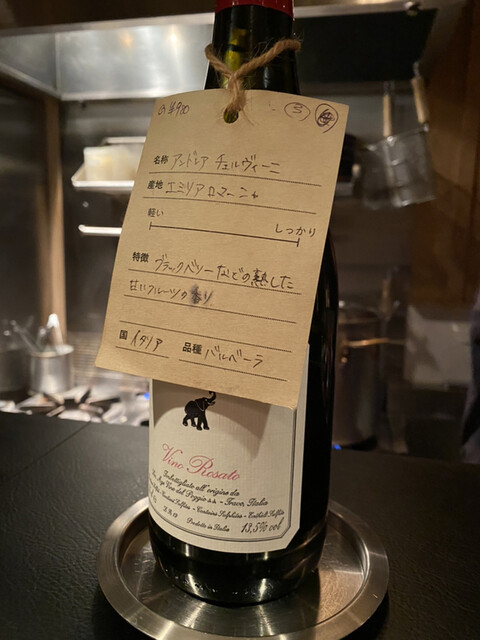 ¥900
名称 アンドレア チェルヴィーニ
産地 エミリアロマーニャ
軽い しっかり
特徴 ブラックベリーなどの熟した
甘いフルーツの香り
国 イタリア 品種 バルベーラ
Vino Rosato
Imbottigliato all'origine da
Az. Agr. Vino del Poggio s.s. - Travo, Italia
Solfiti - Contains Sulphites - Enthält Sulfite
Prodotto in Italia 13,5% vol